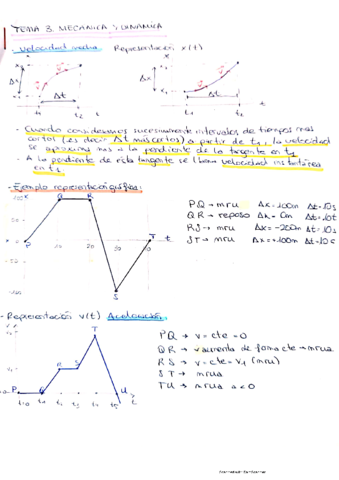 TEMA 3. MECÁNICA Y DINÁMICA
- Velocidad media. Representación x(t)
Δx
Δt
t₁ t₂ t
Δx
Δt
t₁ t₂ t
- Cuando consideramos sucesivamente intervalos de tiempos mas
cortos (es decir Δt mas cortos) a partir de t₁, la velocidad
se aproxima mas a la pendiente de la tangente en t₁
- A la pendiente de esta tangente se llama velocidad instantánea
en t₁
- Ejemplo representación gráfica:
PQ → mru Δx = 100m Δt = 10s
QR → reposo Δx = 0m Δt = 10t
RS → mru Δx = -200m Δt = 10s
ST → mru Δx = +100m Δt = 10s
P Q R S T t
- Representación v(t) Aceleración
PQ → v = cte = 0
QR → v aumenta de forma cte → mrua
RS → v = cte = v₁ (mru)
ST → mrua
TU → mrua a < 0
P Q R S T U
t